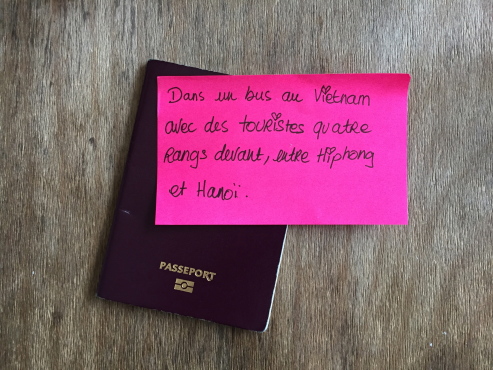 Dans un bus au Vietnam
avec des touristes quatre
Rangs devant, entre Hiphong
et Hanoï.
PASSEPORT